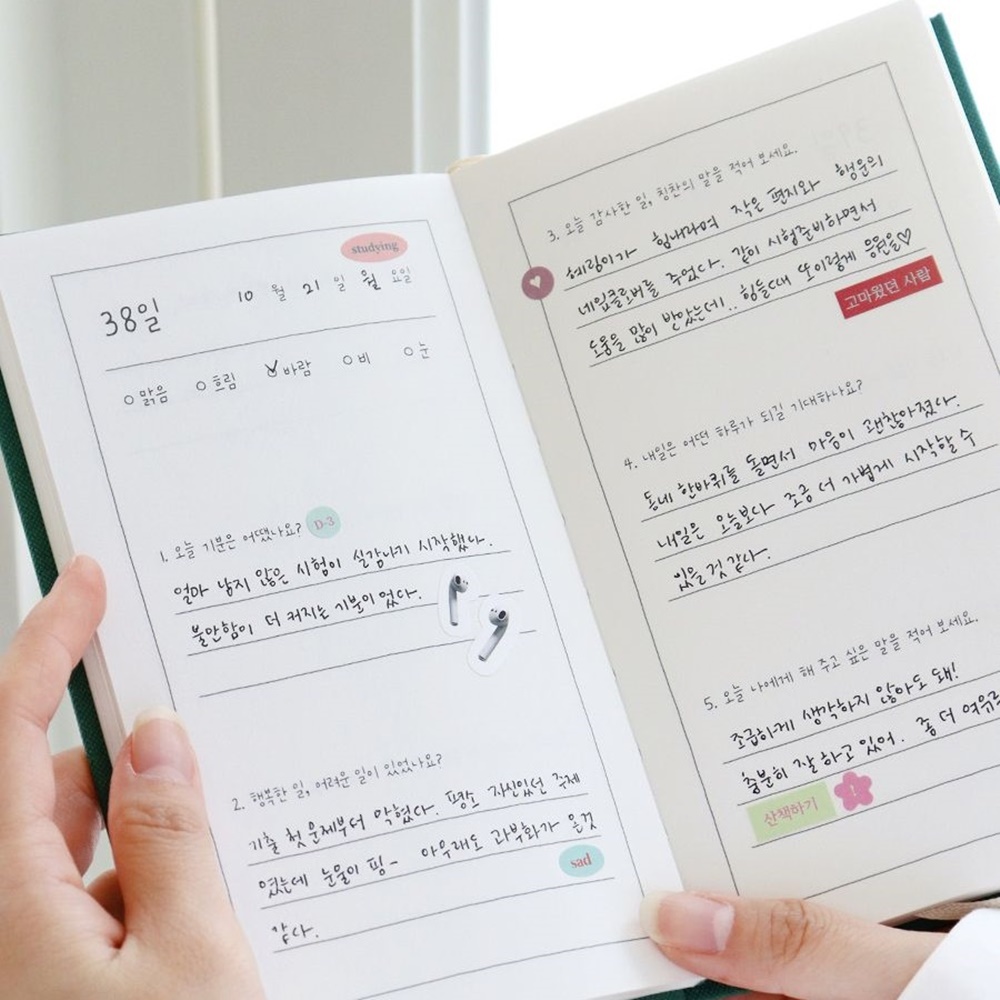 studying
38일 10 월 21 일 월 요일
맑음 흐림 바람 비 눈
1. 오늘 기분은 어땠나요? D-3
얼마 남지 않은 시험이 실감나기 시작했다.
불안함이 더 커지는 기분이었다.
2. 행복한 일, 어려운 일이 있었나요?
기출 첫 문제부터 막혔다. 평소 자신있던 주제
였는데 눈물이 핑- 아무래도 과부화가 온것
같다.
sad
3. 오늘 감사한 일, 칭찬의 말을 적어 보세요.
혜림이가 힘내라며 작은 편지와 행운의
네잎클로버를 주었다. 같이 시험준비하면서
도움을 많이 받았는데.. 힘들때 또이렇게 응원을♡
고마웠던 사람
4. 내일은 어떤 하루가 되길 기대하나요?
동네 한바퀴를 돌면서 마음이 괜찮아졌다.
내일은 오늘보다 조금 더 가볍게 시작할 수
있을것 같다.
5. 오늘 나에게 해 주고 싶은 말을 적어 보세요.
조급하게 생각하지 않아도 돼!
충분히 잘 하고 있어. 좀 더 여유로
산책하기